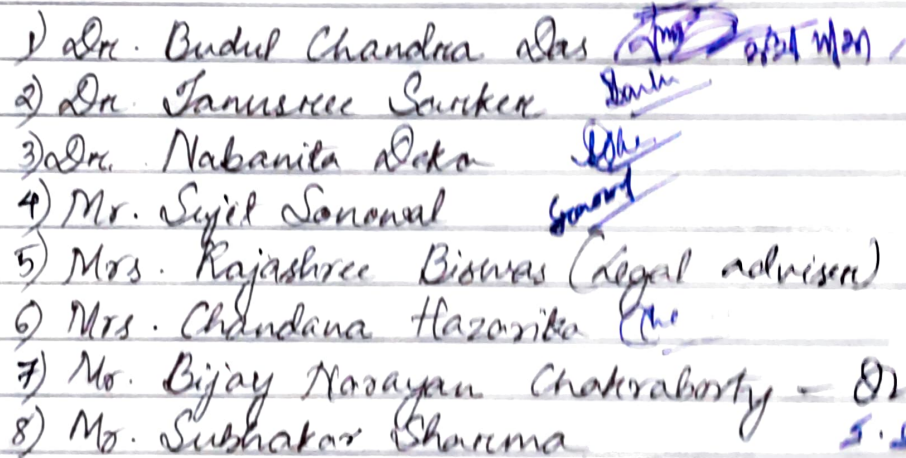 1) Dr. Budul Chandra Das
2) Dr. Tanusree Sarker
3) Dr. Nabanita Deka
4) Mr. Sujit Sonowal
5) Mrs. Rajashree Biswas (Legal adviser)
6) Mrs. Chandana Hazarika
7) Mr. Bijay Narayan Chakraborty -
8) Mr. Subhakar Sharma